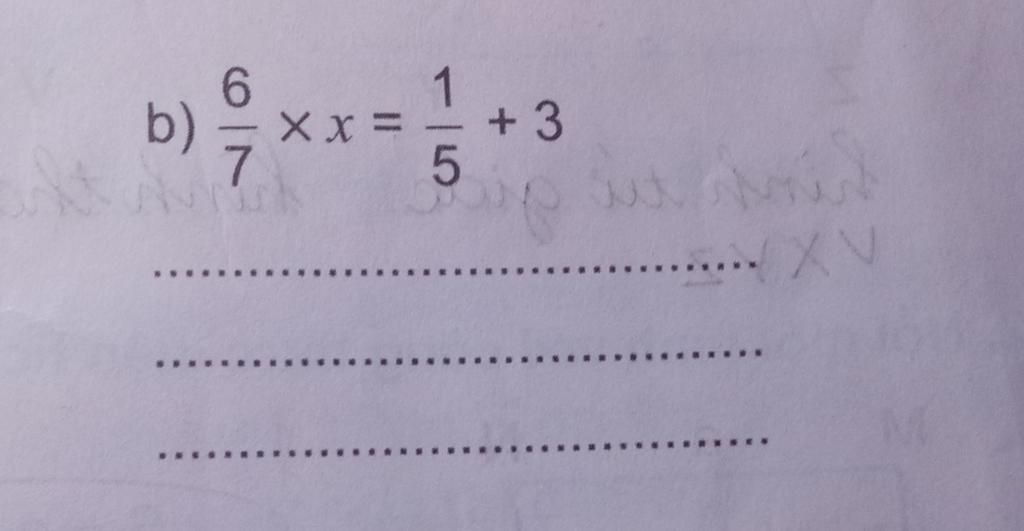 b) 6/7 × x = 1/5 + 3
........................................
........................................
........................................